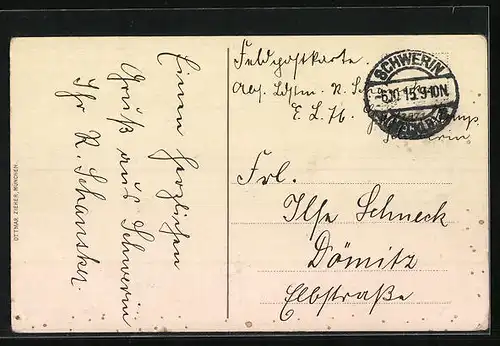 Einen herzlichen
Gruß aus Schwerin
Ihr R.
OTTMAR ZIEHER, MÜNCHEN.
Feldpostkarte.
Abs. Ldstm. R.
E. L. 76.
SCHWERIN
9-10N
Frl.
Ilse Schneck
Dömitz
Elbstraße